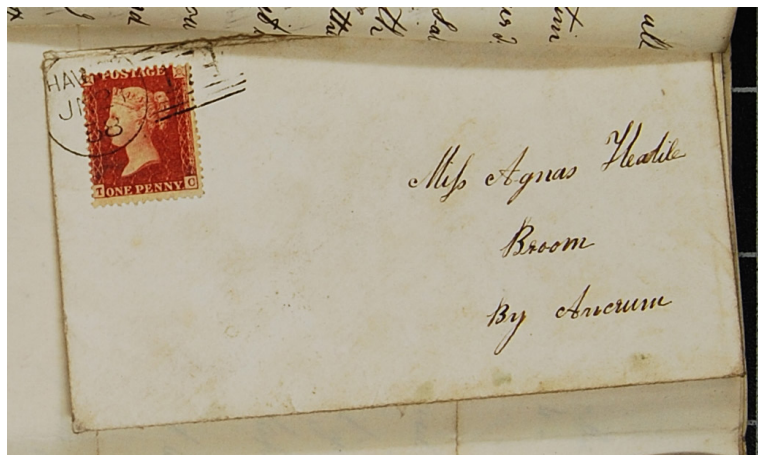 all
HAW
JN
58
POSTAGE
ONE PENNY
T C
Miss Agnas Heatlie
Broom
By Ancrum